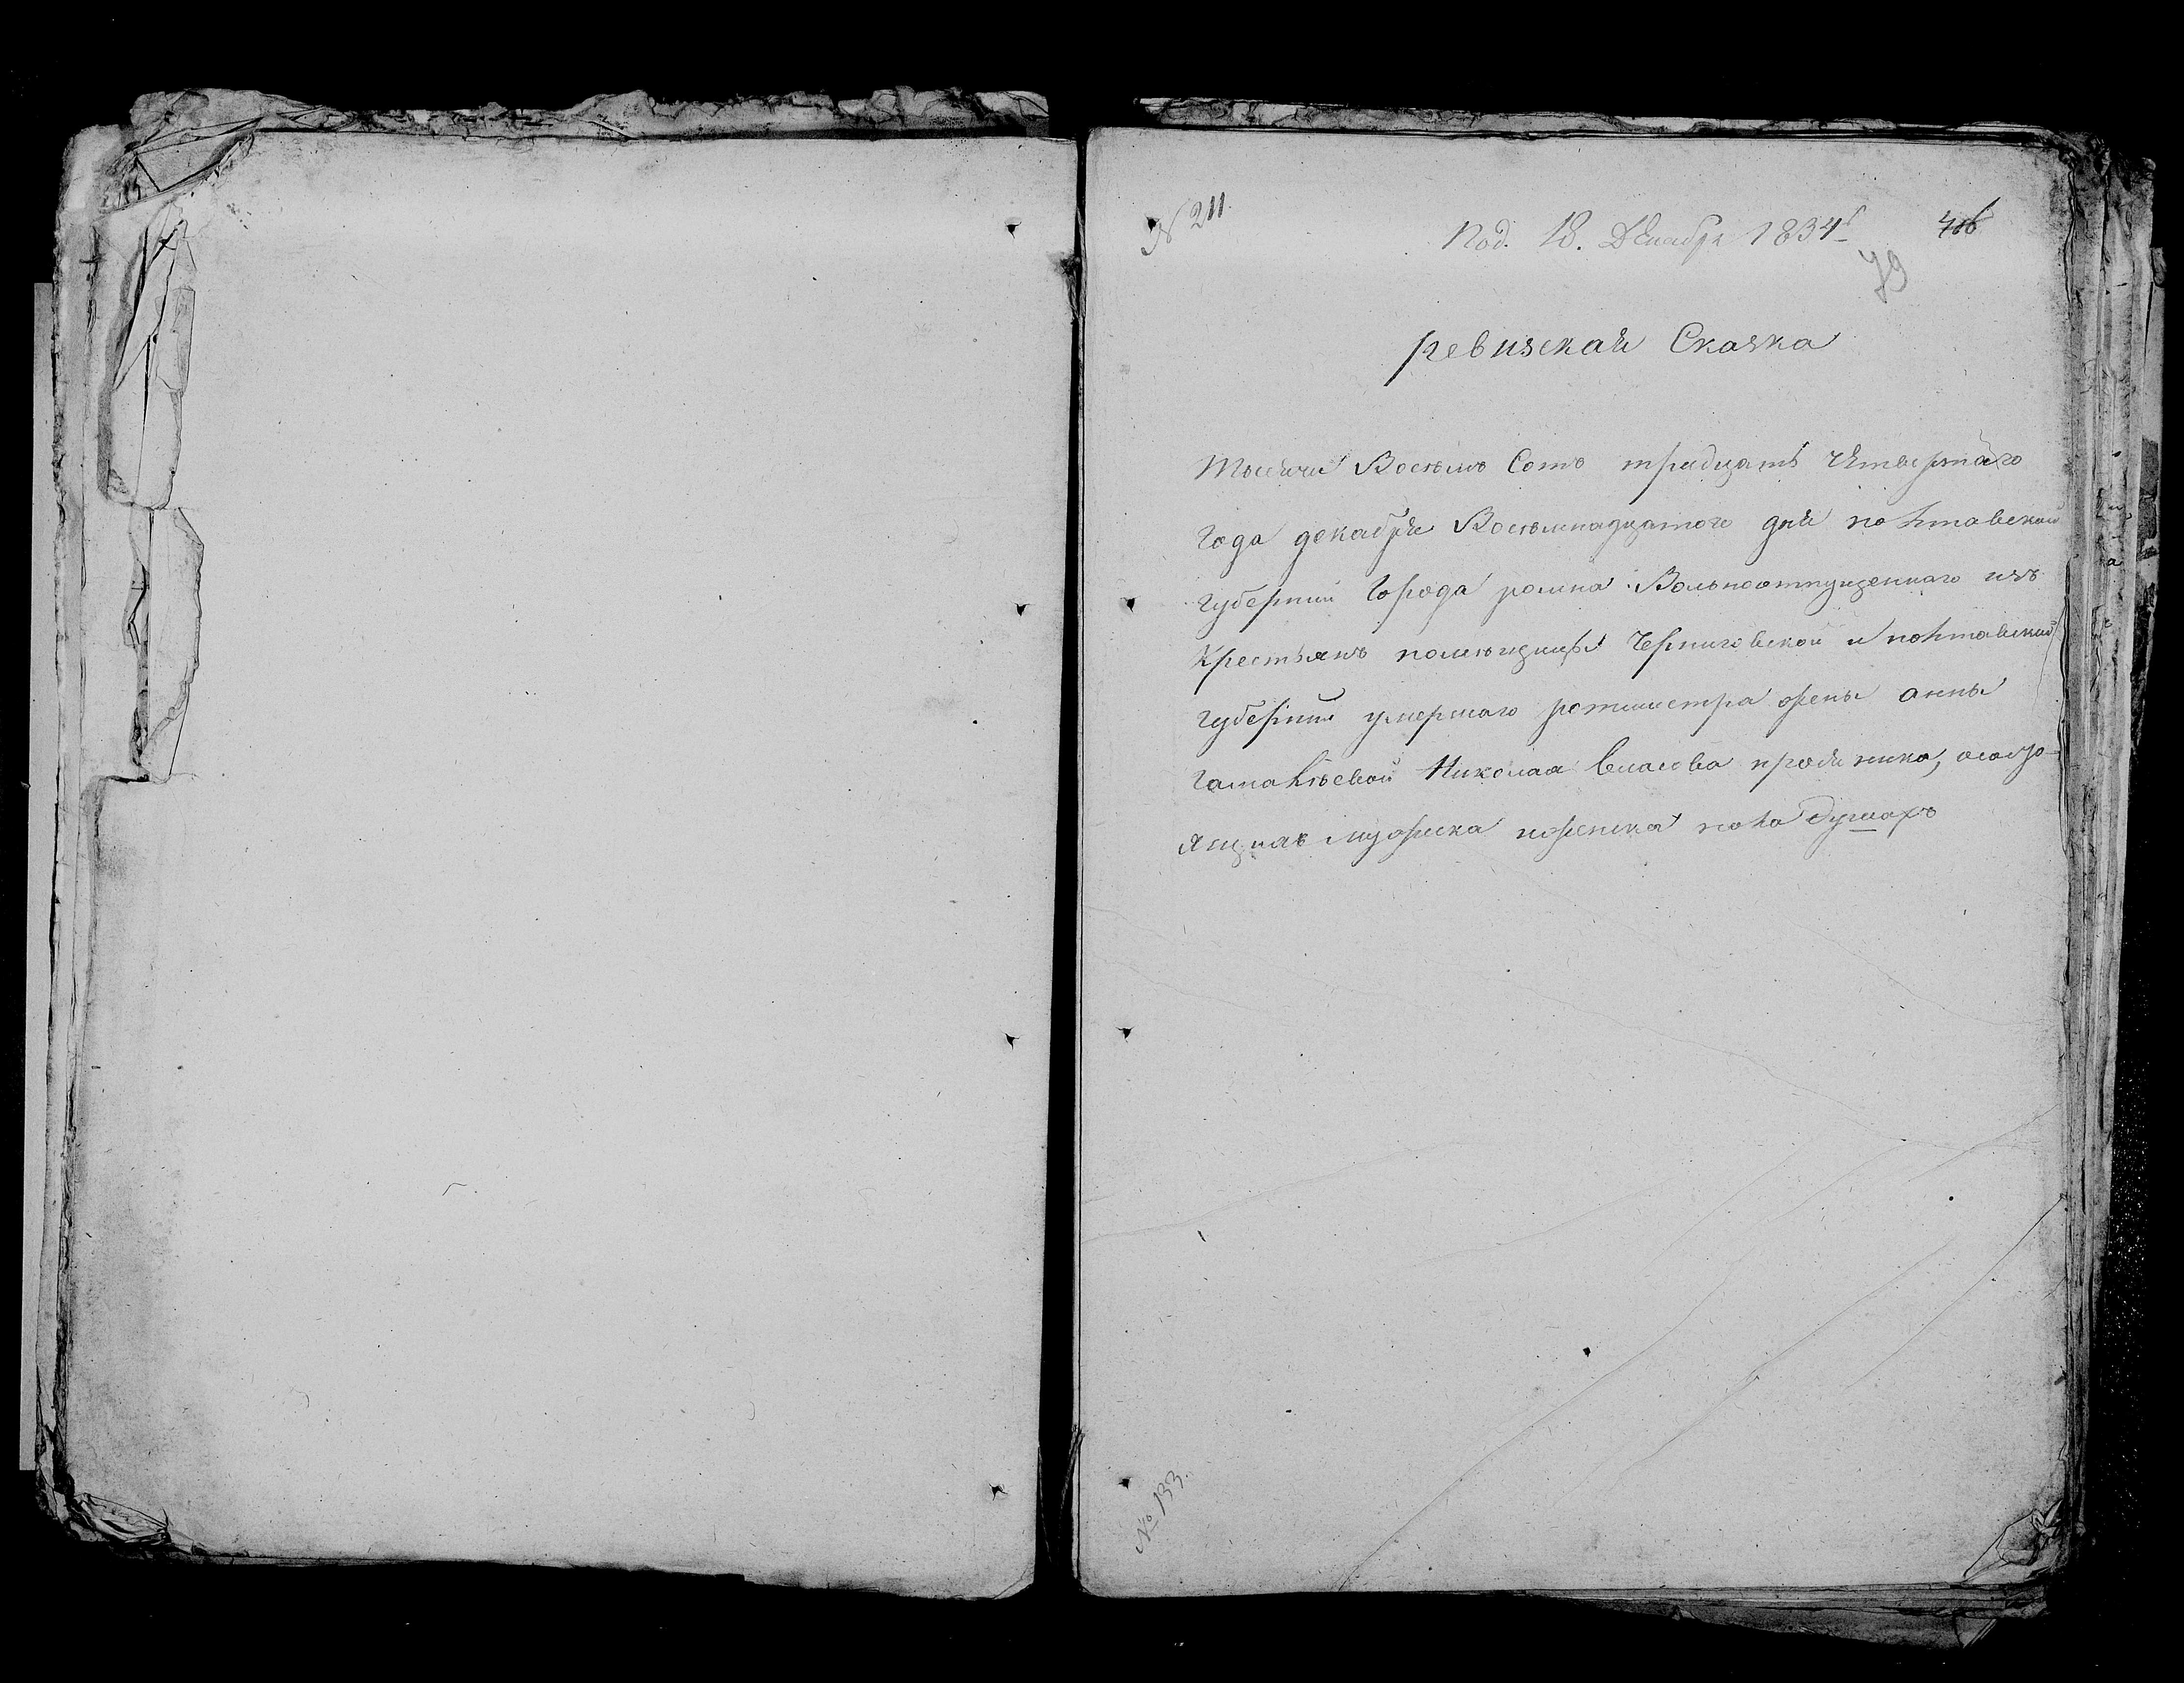 № 211.
Под. 18. Декабря 1834г
406
79
ревизская Сказка
Тысяча Восемъ Сотъ тридцатъ четвертаго
Года декабря Восемнадцатого дня полтавской
губернии Города ромна Вольноотпущенного изъ
Крестьянъ помещицы Черниговской и полтавской
губернии умершаго ротмистра жены анны
Николая Власова
мужеска и женска пола душахъ
№ 133.